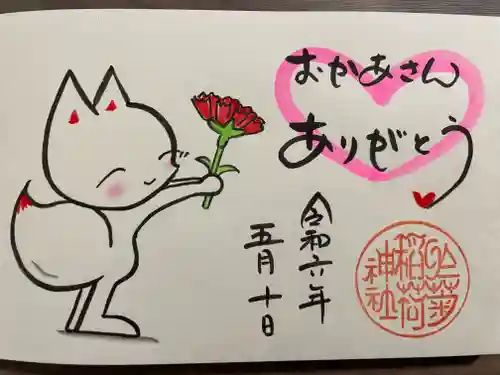 おかあさん
ありがとう
令和六年
五月十日
稲荷
神社